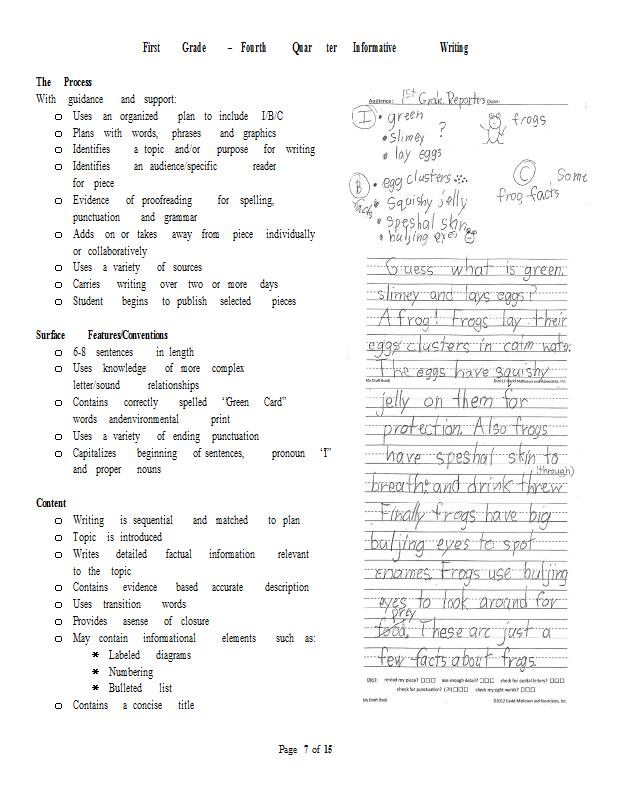 First Grade – Fourth Quar ter Informative Writing
The Process
With guidance and support:
o Uses an organized plan to include I/B/C
o Plans with words, phrases and graphics
o Identifies a topic and/or purpose for writing
o Identifies an audience/specific reader
for piece
o Evidence of proofreading for spelling,
punctuation and grammar
o Adds on or takes away from piece individually
or collaboratively
o Uses a variety of sources
o Carries writing over two or more days
o Student begins to publish selected pieces
Surface Features/Conventions
o 6-8 sentences in length
o Uses knowledge of more complex
letter/sound relationships
o Contains correctly spelled “Green Card”
words andenvironmental print
o Uses a variety of ending punctuation
o Capitalizes beginning of sentences, pronoun “I”
and proper nouns
Content
o Writing is sequential and matched to plan
o Topic is introduced
o Writes detailed factual information relevant
to the topic
o Contains evidence based accurate description
o Uses transition words
o Provides asense of closure
o May contain informational elements such as:
* Labeled diagrams
* Numbering
* Bulleted list
o Contains a concise title
Audience: 1st Grade Reporters Date:
I • green ? frogs
• slimey
• lay eggs
B • egg clusters C Some
facts • squishy jelly frog facts
• speshal skin
• buljing eyes
Guess what is green,
slimey and lays eggs?
A frog! Frogs lay their
eggs clusters in calm water.
The eggs have squishy
My Draft Book ©2012 David Matteson and Associates, Inc.
jelly on them for
protection. Also frogs
have speshal skin to
(through)
breathe and drink threw
Finally frogs have big
buljing eyes to spot
enames. Frogs use buljing
eyes to look around for
prey
food. These are just a
few facts about frogs.
Did I: reread my piece? □□□ use enough detail? □□□ check for capital letters? □□□
check for punctuation? (.?!) □□□ check my sight words? □□□
My Draft Book ©2012 David Matteson and Associates, Inc.
Page 7 of 15